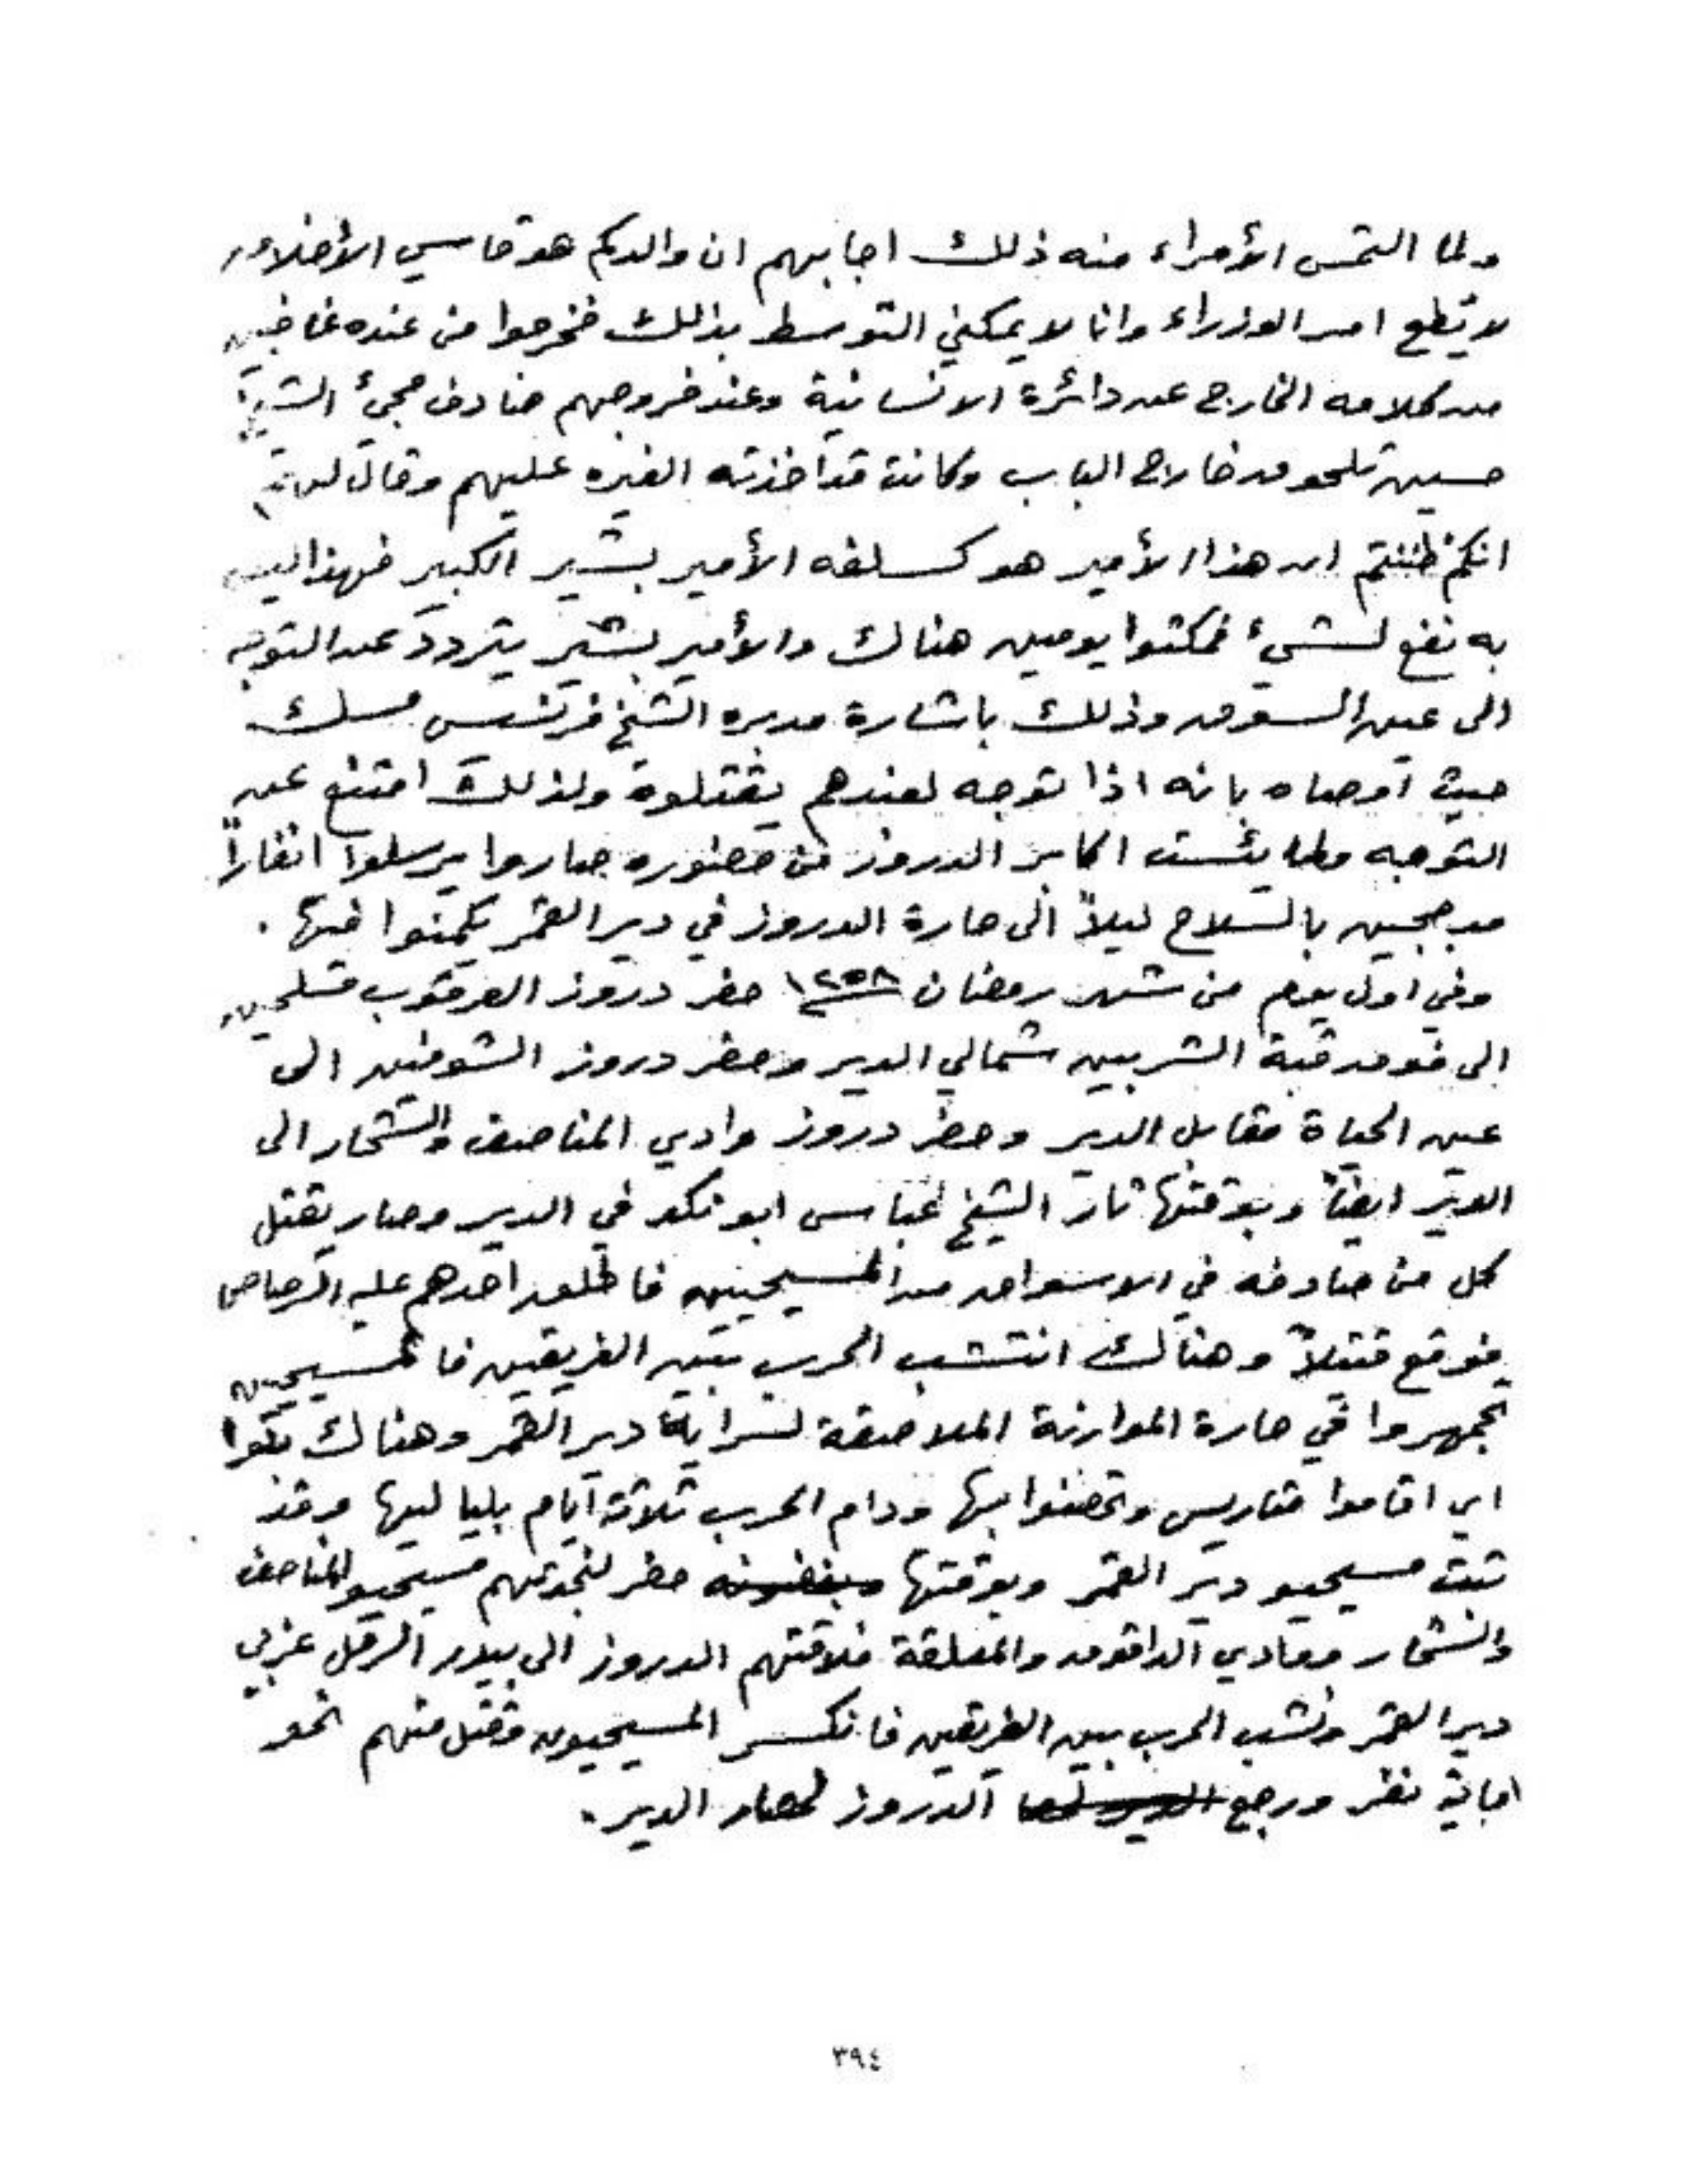 ولما التمس الأمراء منه ذلك اجابهم ان والدكم هو قاسي الأخلاق
لا يطع امر الوزراء وانا لا يمكني التوسط بذلك فخرجوا من عنده غاضبين
من كلامه الخارج عن دائرة الانسانية وعند خروجهم صادف مجيئ الشيخ
حسين تلحوق خارج الباب وكانت قد اخذته الغيره عليهم وقال لهم
انكم ظننتم ان هذا الأمير هو كسلفه الأمير بشير الكبير فهذا ليس
به نفع لشيء فمكثوا يومين هناك والأمير بشير يتردد عن التوجه
الى عين السوق وذلك باشارة مدبره الشيخ فرنسيس مسك
حيث اوصاه بانه اذا توجه لعندهم يقتلوه ولذلك امتنع عن
التوجه ولما يئست اكابر الدروز من حضوره صاروا يرسلوا انفاراً
مدججين بالسلاح ليلاً الى حارة الدروز في دير القمر يكمنوا فيها .
وفي اول يوم من شهر رمضان ١٢٥٨ حضر دروز العرقوب مسلحين
الى فوق قبة الشربين شمالي الدير وحضر دروز الشوفين الى
عين الحياة مقابل الدير وحضر دروز وادي المناصف والشحار الى
الدير ايضاً وبوقتها ثار الشيخ عباس ابو نكد في الدير وصار يقتل
كل من صادفه في الاسواق من المسيحيين فاطلق احدهم عليه الرصاص
فوقع قتيلاً وهناك انتشب الحرب بين الفريقين فالمسيحيين
تجمهروا في حارة الموارنة الملاصقة لسراية دير القمر وهناك
اي اقاموا متاريس وتحصنوا بها ودام الحرب ثلاثة ايام بلياليها وقد
ثبت مسيحيو دير القمر وبوقتها حضر لنجدتهم مسيحيو المناصف
والشحار ووادي الداقوق والمعلقة فلاقتهم الدروز الى بيدر الرمل غربي
دير القمر ونشب الحرب بين الفريقين فانكسر المسيحيون وقتل منهم نحو
نفر ورجع الدروز لحصار الدير .
٣٩٤